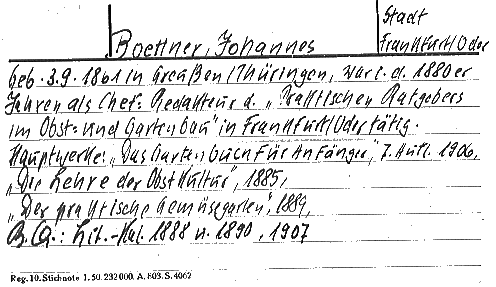 Boettner, Johannes
Stadt
Frankfurt/Oder
geb. 3.9.1861 in Greußen/Thüringen, war i. d. 1880er
Jahren als Chef-Redakteur d. „Praktischen Ratgebers
im Obst- und Gartenbau" in Frankfurt/Oder tätig.
Hauptwerke: „Das Gartenbuch für Anfänger", 7. Aufl. 1906,
„Die Lehre der Obstkultur", 1885,
„Der praktische Gemüsegarten", 1889,
B. Q.: Lit.-Kal. 1888 u. 1890, 1907
Reg. 10. Stichnote 1. 50. 232000. A. 803. S. 4062